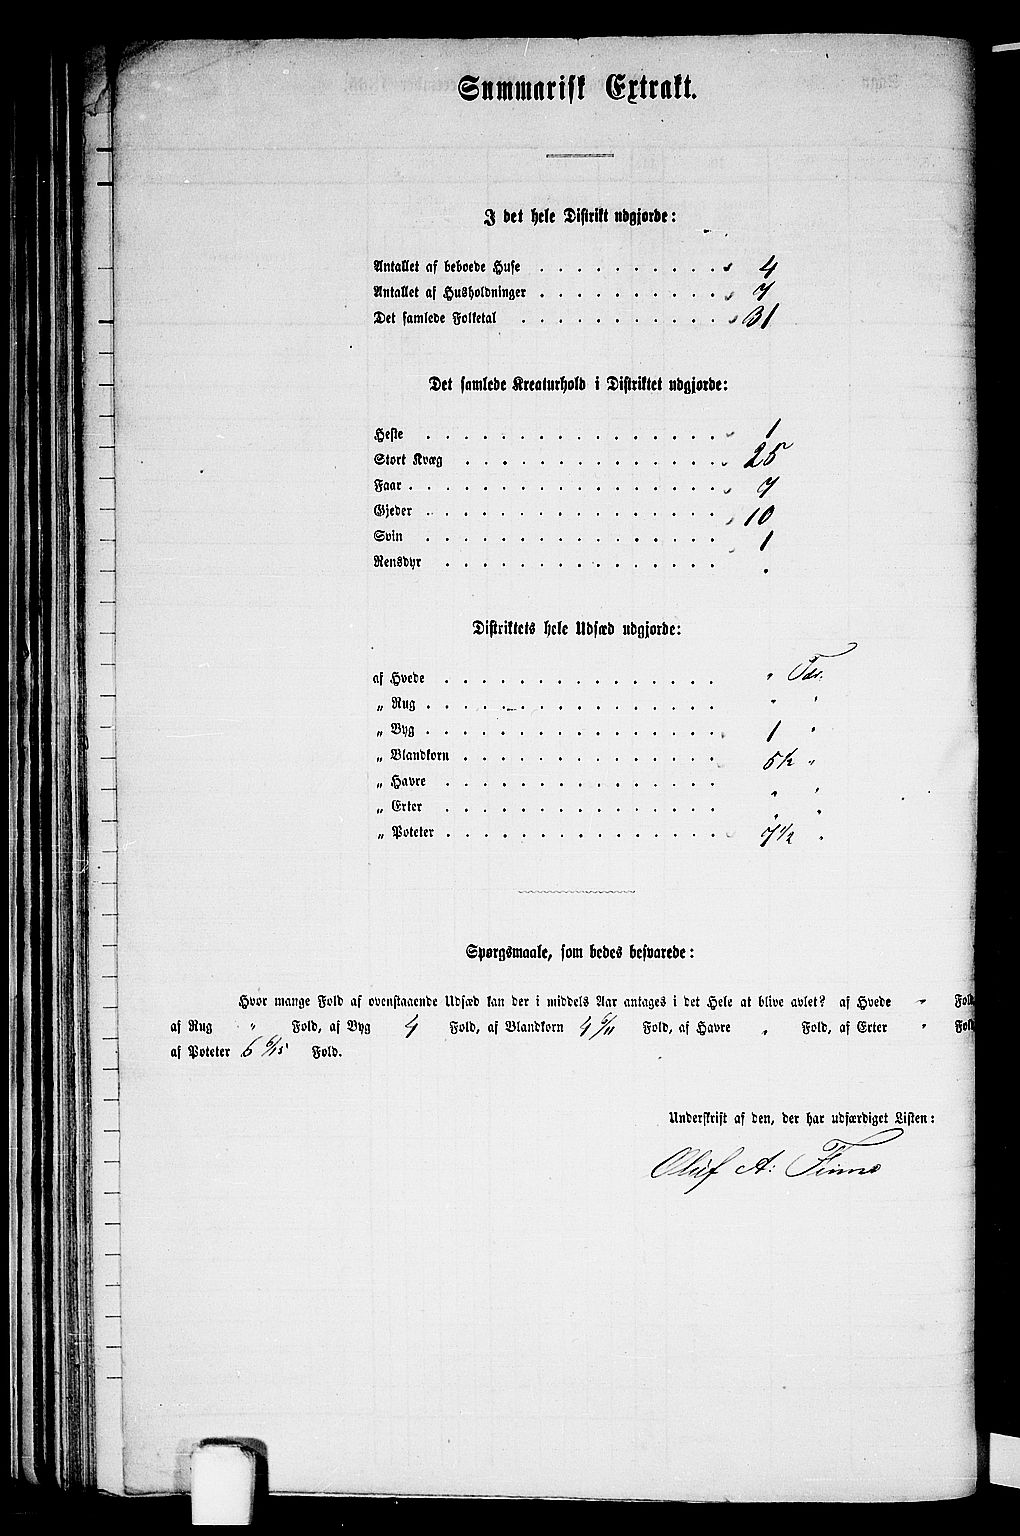 Summarisk Extrakt.
I det hele Distrikt udgjorde:
Antallet af beboede Huse . . . . . . . . . . 4
Antallet af Husholdninger . . . . . . . . . . 7
Det samlede Folketal . . . . . . . . . . . 31
Det samlede Kreaturhold i Distriktet udgjorde:
Heste . . . . . . . . . . . . . . . . 1
Stort Kvæg . . . . . . . . . . . . . . 25
Faar . . . . . . . . . . . . . . . . . 7
Gjeder . . . . . . . . . . . . . . . . 10
Svin . . . . . . . . . . . . . . . . 1
Rensdyr . . . . . . . . . . . . . . . .
Distriktets hele Udsæd udgjorde:
af Hvede . . . . . . . . . . . . . . . " Tdr.
„ Rug . . . . . . . . . . . . . . . . " "
„ Byg . . . . . . . . . . . . . . . . 1 "
„ Blandkorn . . . . . . . . . . . . . . 5½ "
„ Havre . . . . . . . . . . . . . . . " "
„ Erter . . . . . . . . . . . . . . . " "
„ Poteter . . . . . . . . . . . . . . . 7½ "
Spørgsmaale, som bedes besvarede:
Hvor mange Fold af ovenstaaende Udsæd kan der i middels Aar antages i det Hele at blive avlet? af Hvede " Fold,
af Rug " Fold, af Byg 4 Fold, af Blandkorn 4 6/11 Fold, af Havre " Fold, af Erter " Fold,
af Poteter 6 6/15 Fold.
Underskrift af den, der har udfærdiget Listen:
Oluf A: